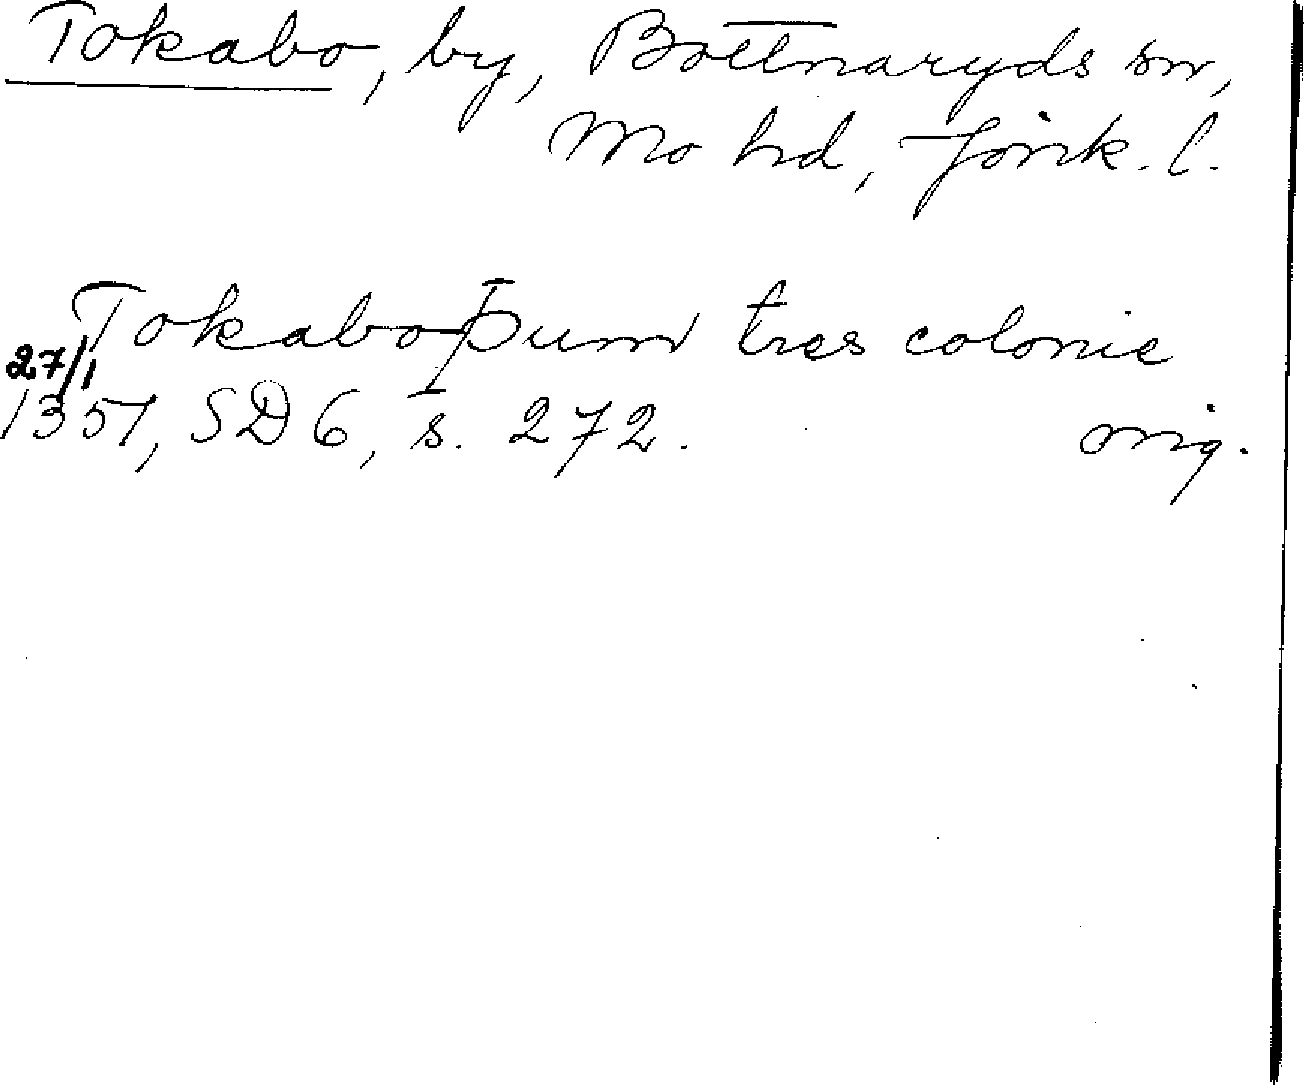 Tokabo, by, Bottnaryds sn,
Mo hd, Jönk. l.
Tokaboþum tres colonie
27/1
1351, SD 6, s. 272. orig.